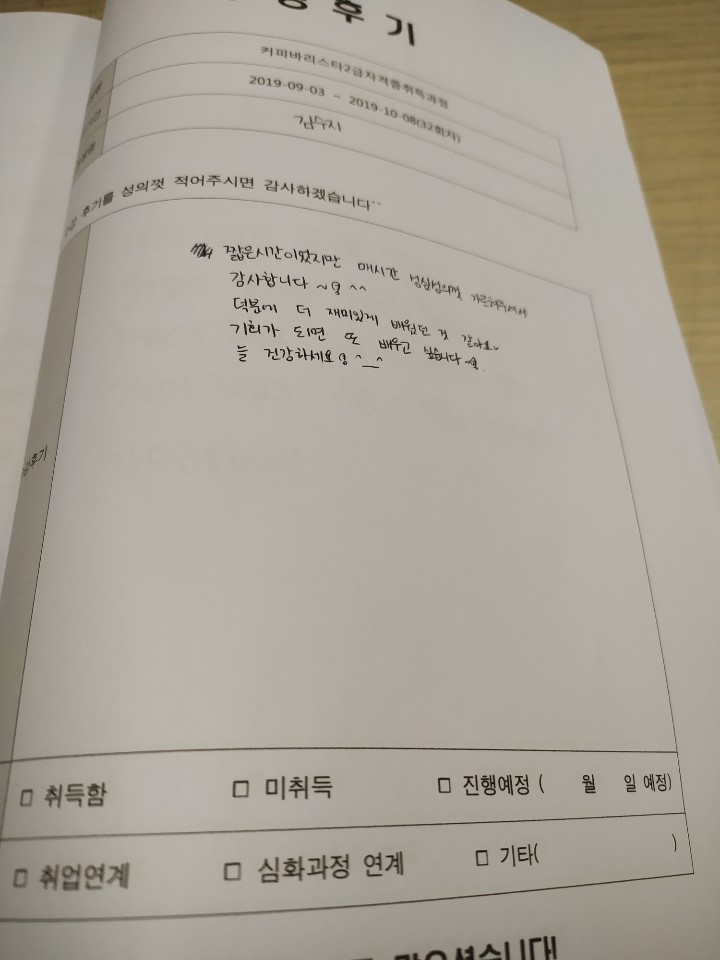 후기
커피바리스타2급자격증취득과정
2019-09-03 ~ 2019-10-08(32회차)
김수지
후기를 성의껏 적어주시면 감사하겠습니다^^
짧은시간이었지만 매시간 성심성의껏 가르쳐주셔서
감사합니다 ~! ^^
덕분에 더 재미있게 배웠던 것 같아요~
기회가 되면 또 배우고 싶습니다 ~!
늘 건강하세요! ^__^
후기
□ 취득함 □ 미취득 □ 진행예정 ( 월 일 예정)
□ 취업연계 □ 심화과정 연계 □ 기타( )